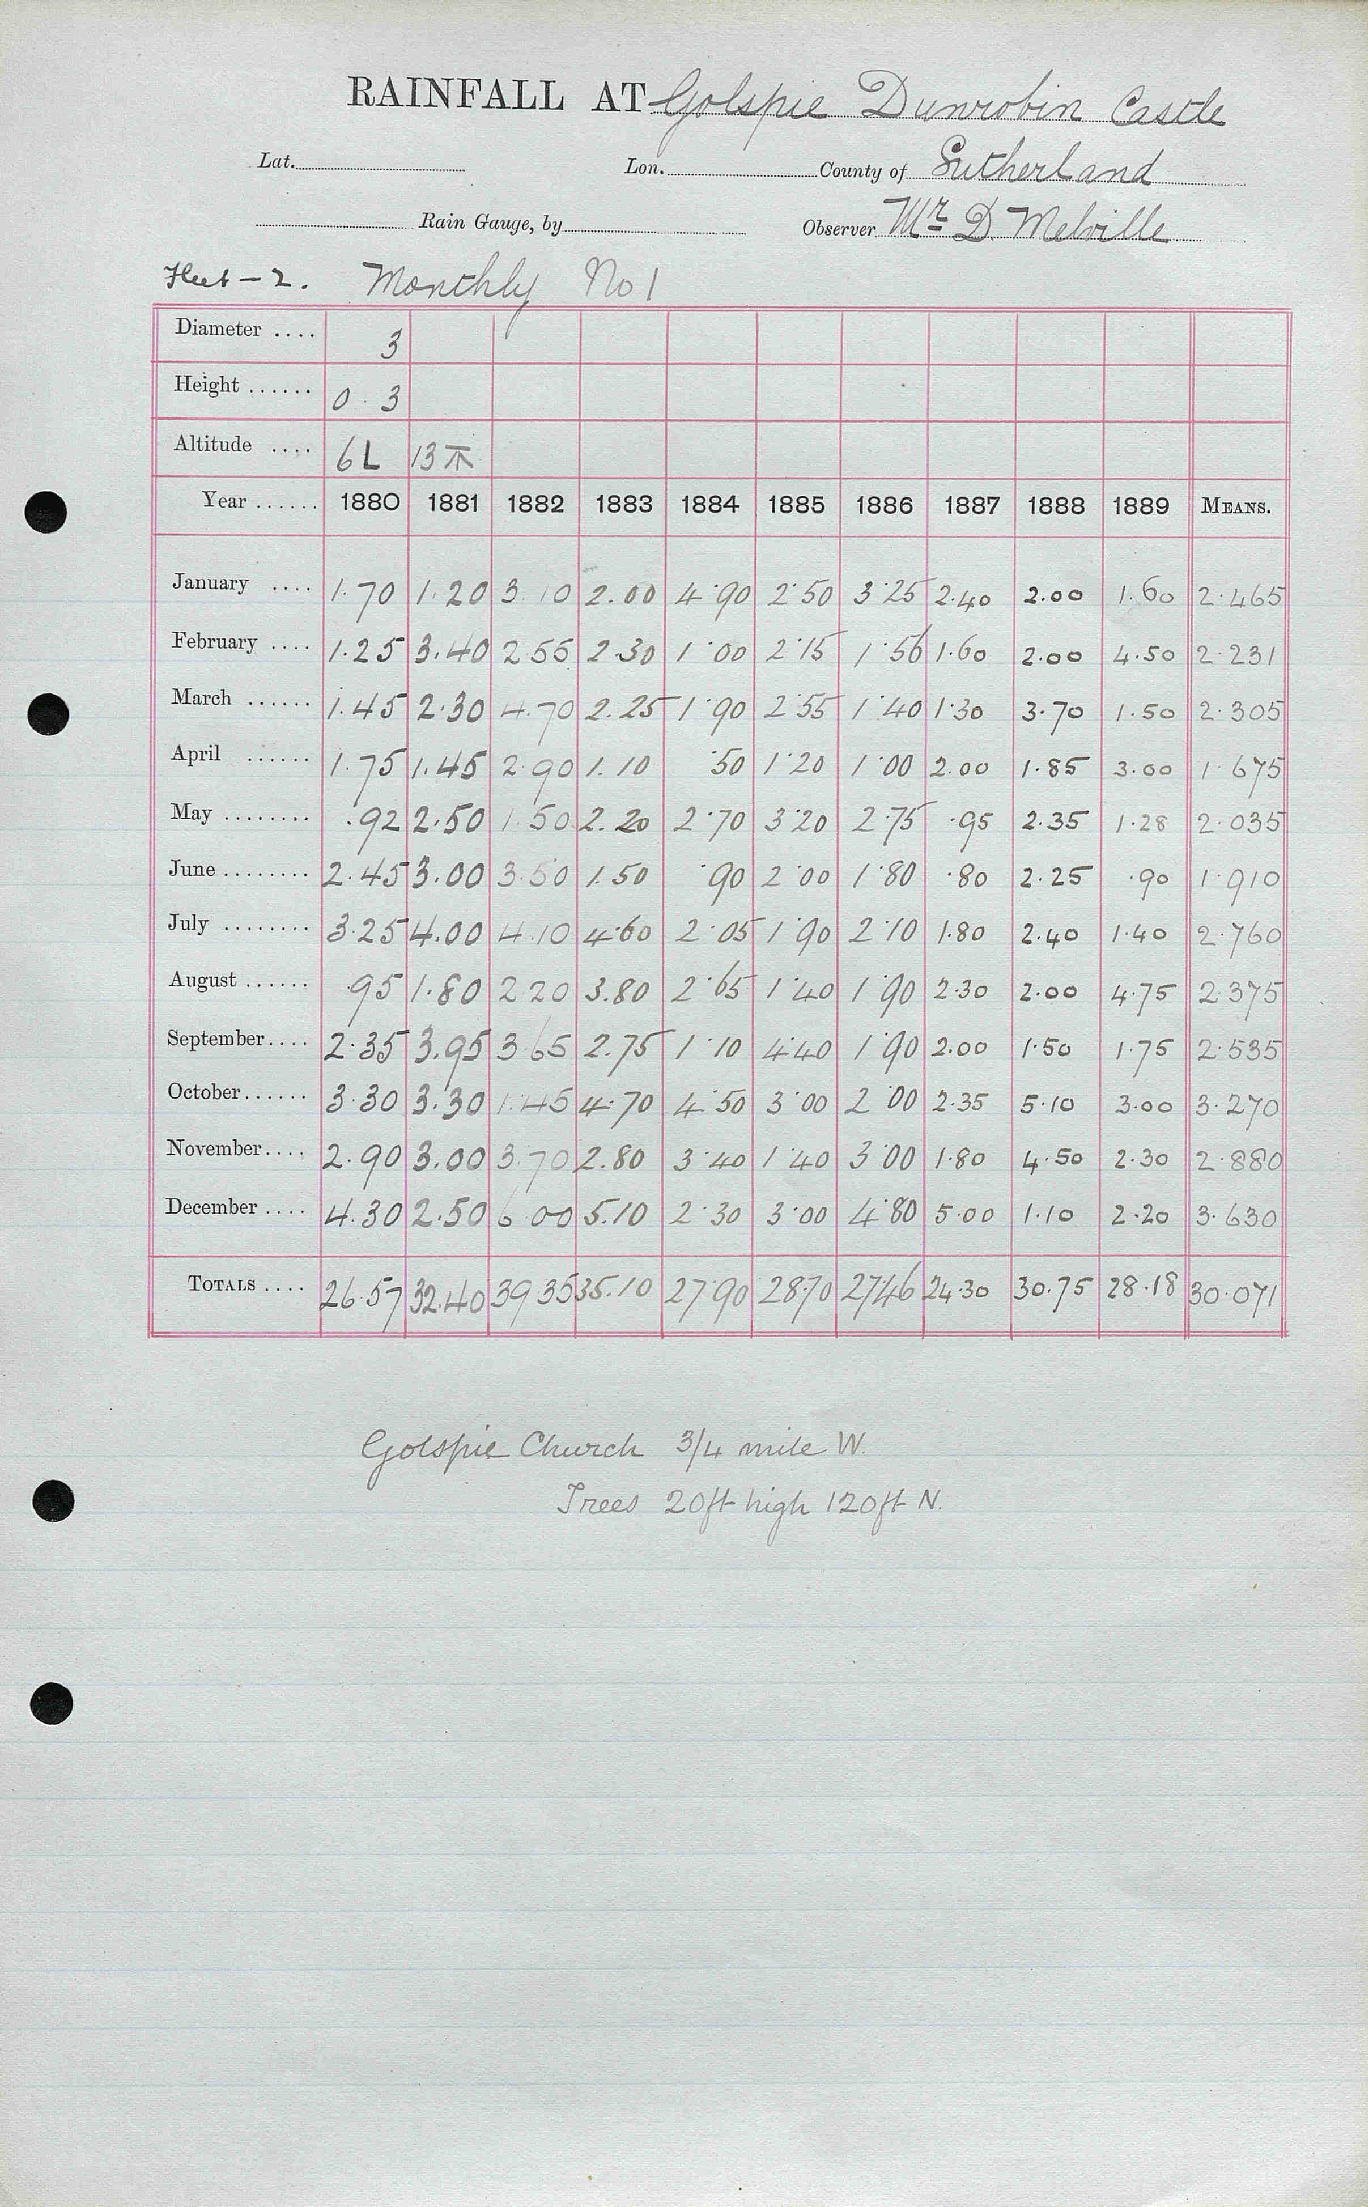 RAINFALL AT Golspie Dunrobin Castle
Lat. Lon. County of Sutherland
Rain Gauge, by Observer Mr D Melville
Fleet – 2. Monthly No 1
Diameter .... 3
Height ...... 0 . 3
Altitude .... 6L 13
Year ...... 1880 1881 1882 1883 1884 1885 1886 1887 1888 1889 MEANS.
January .... 1.70 1.20 3.10 2.00 4.90 2.50 3.25 2.40 2.00 1.60 2.465
February .... 1.25 3.40 2.55 2.30 1.00 2.15 1.56 1.60 2.00 4.50 2.231
March ...... 1.45 2.30 4.70 2.25 1.90 2.55 1.40 1.30 3.70 1.50 2.305
April ...... 1.75 1.45 2.90 1.10 .50 1.20 1.00 2.00 1.85 3.00 1.675
May ........ .92 2.50 1.50 2.20 2.70 3.20 2.75 .95 2.35 1.28 2.035
June ........ 2.45 3.00 3.50 1.50 .90 2.00 1.80 .80 2.25 .90 1.910
July ........ 3.25 4.00 4.10 4.60 2.05 1.90 2.10 1.80 2.40 1.40 2.760
August ...... .95 1.80 2.20 3.80 2.65 1.40 1.90 2.30 2.00 4.75 2.375
September.... 2.35 3.95 3.65 2.75 1.10 4.40 1.90 2.00 1.50 1.75 2.535
October...... 3.30 3.30 1.45 4.70 4.50 3.00 2.00 2.35 5.10 3.00 3.270
November.... 2.90 3.00 3.70 2.80 3.40 1.40 3.00 1.80 4.50 2.30 2.880
December .... 4.30 2.50 6.00 5.10 2.30 3.00 4.80 5.00 1.10 2.20 3.630
TOTALS .... 26.57 32.40 39.35 35.10 27.90 28.70 27.46 24.30 30.75 28.18 30.071
Golspie Church 3/4 mile W.
Trees 20ft high 120ft N.